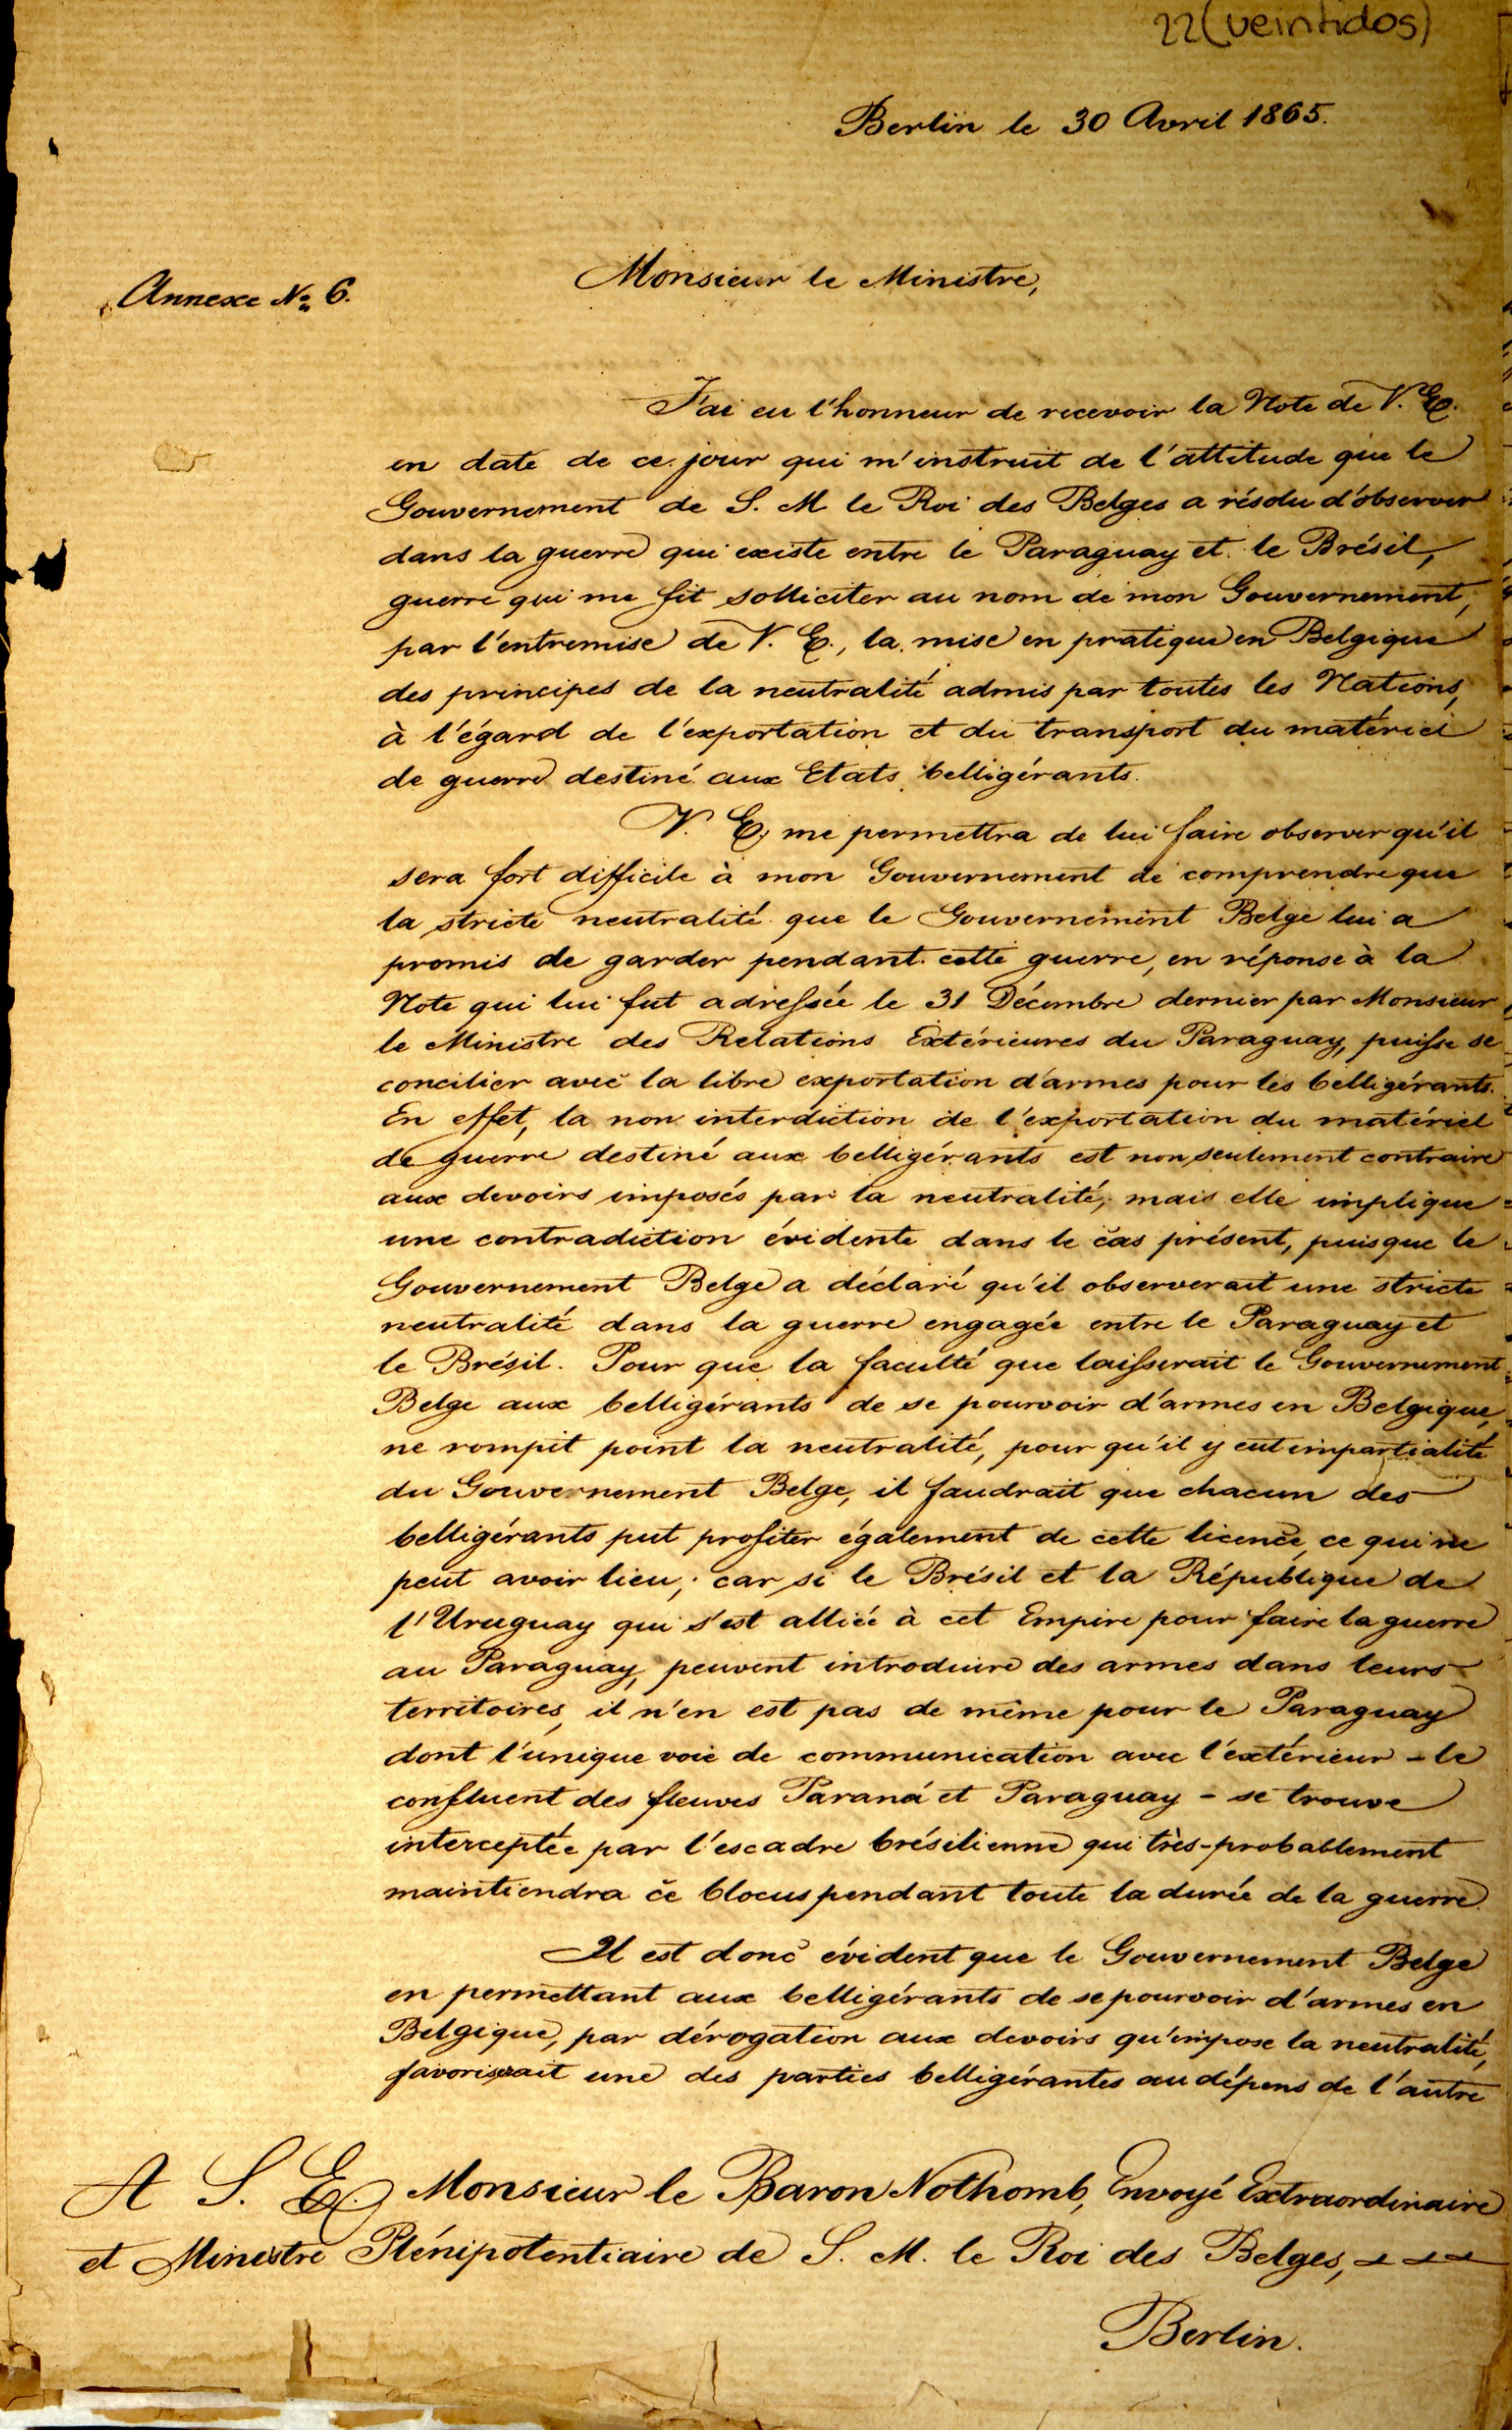 22 (veintidos)
Berlin le 30 Avril 1865.
Annexe No. 6.
Monsieur le Ministre,
J'ai eu l'honneur de recevoir la Note de V. E.
en date de ce jour qui m'instruit de l'attitude que le
Gouvernement de S. M le Roi des Belges a résolu d'observer
dans la guerre qui existe entre le Paraguay et le Brésil,
guerre qui me fit solliciter au nom de mon Gouvernement,
par l'entremise de V. E., la mise en pratique en Belgique
des principes de la neutralité admis par toutes les Nations,
à l'égard de l'exportation et du transport du matériel
de guerre destiné aux Etats belligérants.
V. E. me permettra de lui faire observer qu'il
sera fort difficile à mon Gouvernement de comprendre que
la stricte neutralité que le Gouvernement Belge lui a
promis de garder pendant cette guerre, en réponse à la
Note qui lui fut adressée le 31 Décembre dernier par Monsieur
le Ministre des Relations Extérieures du Paraguay, puisse se
concilier avec la libre exportation d'armes pour les belligérants.
En effet, la non interdiction de l'exportation du matériel
de guerre destiné aux belligérants est non seulement contraire
aux devoirs imposés par la neutralité, mais elle implique
une contradiction évidente dans le cas présent, puisque le
Gouvernement Belge a déclaré qu'il observerait une stricte
neutralité dans la guerre engagée entre le Paraguay et
le Brésil. Pour que la faculté que laisserait le Gouvernement
Belge aux belligérants de se pourvoir d'armes en Belgique,
ne rompit point la neutralité, pour qu'il y eut impartialité
du Gouvernement Belge, il faudrait que chacun des
belligérants put profiter également de cette licence, ce qui ne
peut avoir lieu; car si le Brésil et la République de
l'Uruguay qui s'est alliée à cet Empire pour faire la guerre
au Paraguay, peuvent introduire des armes dans leurs
territoires, il n'en est pas de même pour le Paraguay
dont l'unique voie de communication avec l'extérieur - le
confluent des fleuves Paraná et Paraguay - se trouve
interceptée par l'escadre brésilienne qui très-probablement
maintiendra ce blocus pendant toute la durée de la guerre.
Il est donc évident que le Gouvernement Belge
en permettant aux belligérants de se pourvoir d'armes en
Belgique, par dérogation aux devoirs qu'impose la neutralité,
favoriserait une des parties belligérantes au dépens de l'autre
A S. E. Monsieur le Baron Nothomb, Envoyé Extraordinaire
et Ministre Plénipotentiaire de S. M. le Roi des Belges,
Berlin.